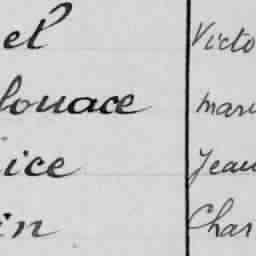 el Victo
louace mari
ice Jean
in Char